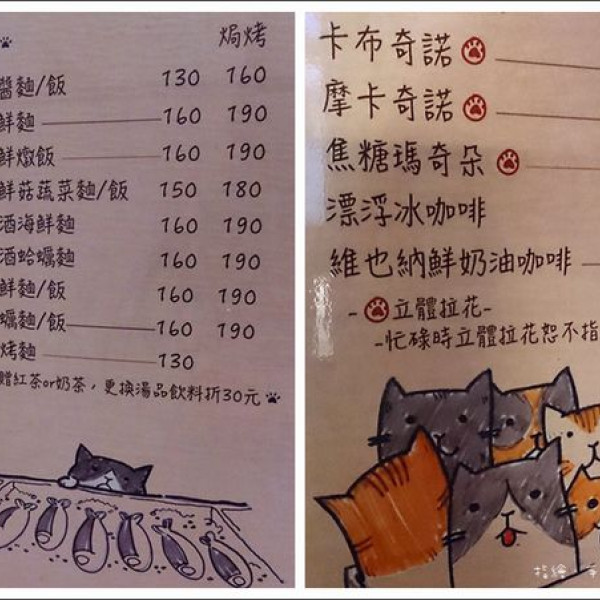 焗烤
醬麵/飯 130 160
鮮麵 160 190
鮮燉飯 160 190
鮮菇蔬菜麵/飯 150 180
酒海鮮麵 160 190
酒蛤蠣麵 160 190
鮮麵/飯 160 190
蠣麵/飯 160 190
烤麵 130
贈紅茶or奶茶，更換湯品飲料折30元
卡布奇諾
摩卡奇諾
焦糖瑪奇朵
漂浮冰咖啡
維也納鮮奶油咖啡
-立體拉花-
-忙碌時立體拉花恕不指